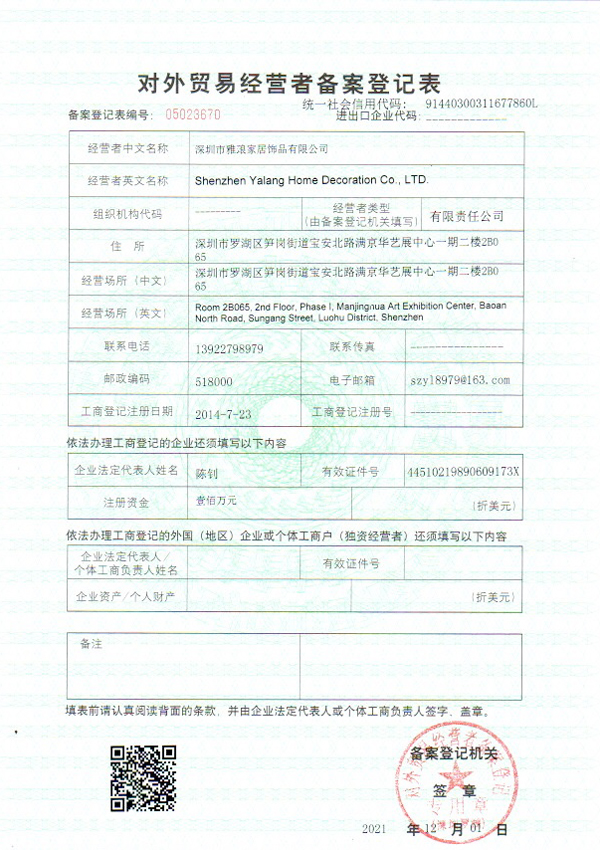 对外贸易经营者备案登记表
统一社会信用代码: 91440300311677860L
备案登记表编号: 05023670
进出口企业代码: -------------
经营者中文名称 深圳市雅浪家居饰品有限公司
经营者英文名称 Shenzhen Yalang Home Decoration Co., LTD.
组织机构代码 --------- 经营者类型
(由备案登记机关填写) 有限责任公司
住 所 深圳市罗湖区笋岗街道宝安北路满京华艺展中心一期二楼2B0
65
经营场所（中文） 深圳市罗湖区笋岗街道宝安北路满京华艺展中心一期二楼2B0
65
经营场所（英文） Room 2B065, 2nd Floor, Phase I, Manjinghua Art Exhibition Center, Baoan
North Road, Sungang Street, Luohu District. Shenzhen
联系电话 13922798979 联系传真 ---------------
邮政编码 518000 电子邮箱 szyl8979@163.com
工商登记注册日期 2014-7-23 工商登记注册号 ---------------
依法办理工商登记的企业还须填写以下内容
企业法定代表人姓名 陈钊 有效证件号 44510219890609173X
注册资金 壹佰万元 (折美元)
依法办理工商登记的外国（地区）企业或个体工商户（独资经营者）还须填写以下内容
企业法定代表人/
个体工商负责人姓名 有效证件号
企业资产/个人财产 (折美元)
备注
填表前请认真阅读背面的条款，并由企业法定代表人或个体工商负责人签字、盖章。
备案登记机关
签 章
对外贸易经营者备案登记
专用章
2021 年 12 月 01 日